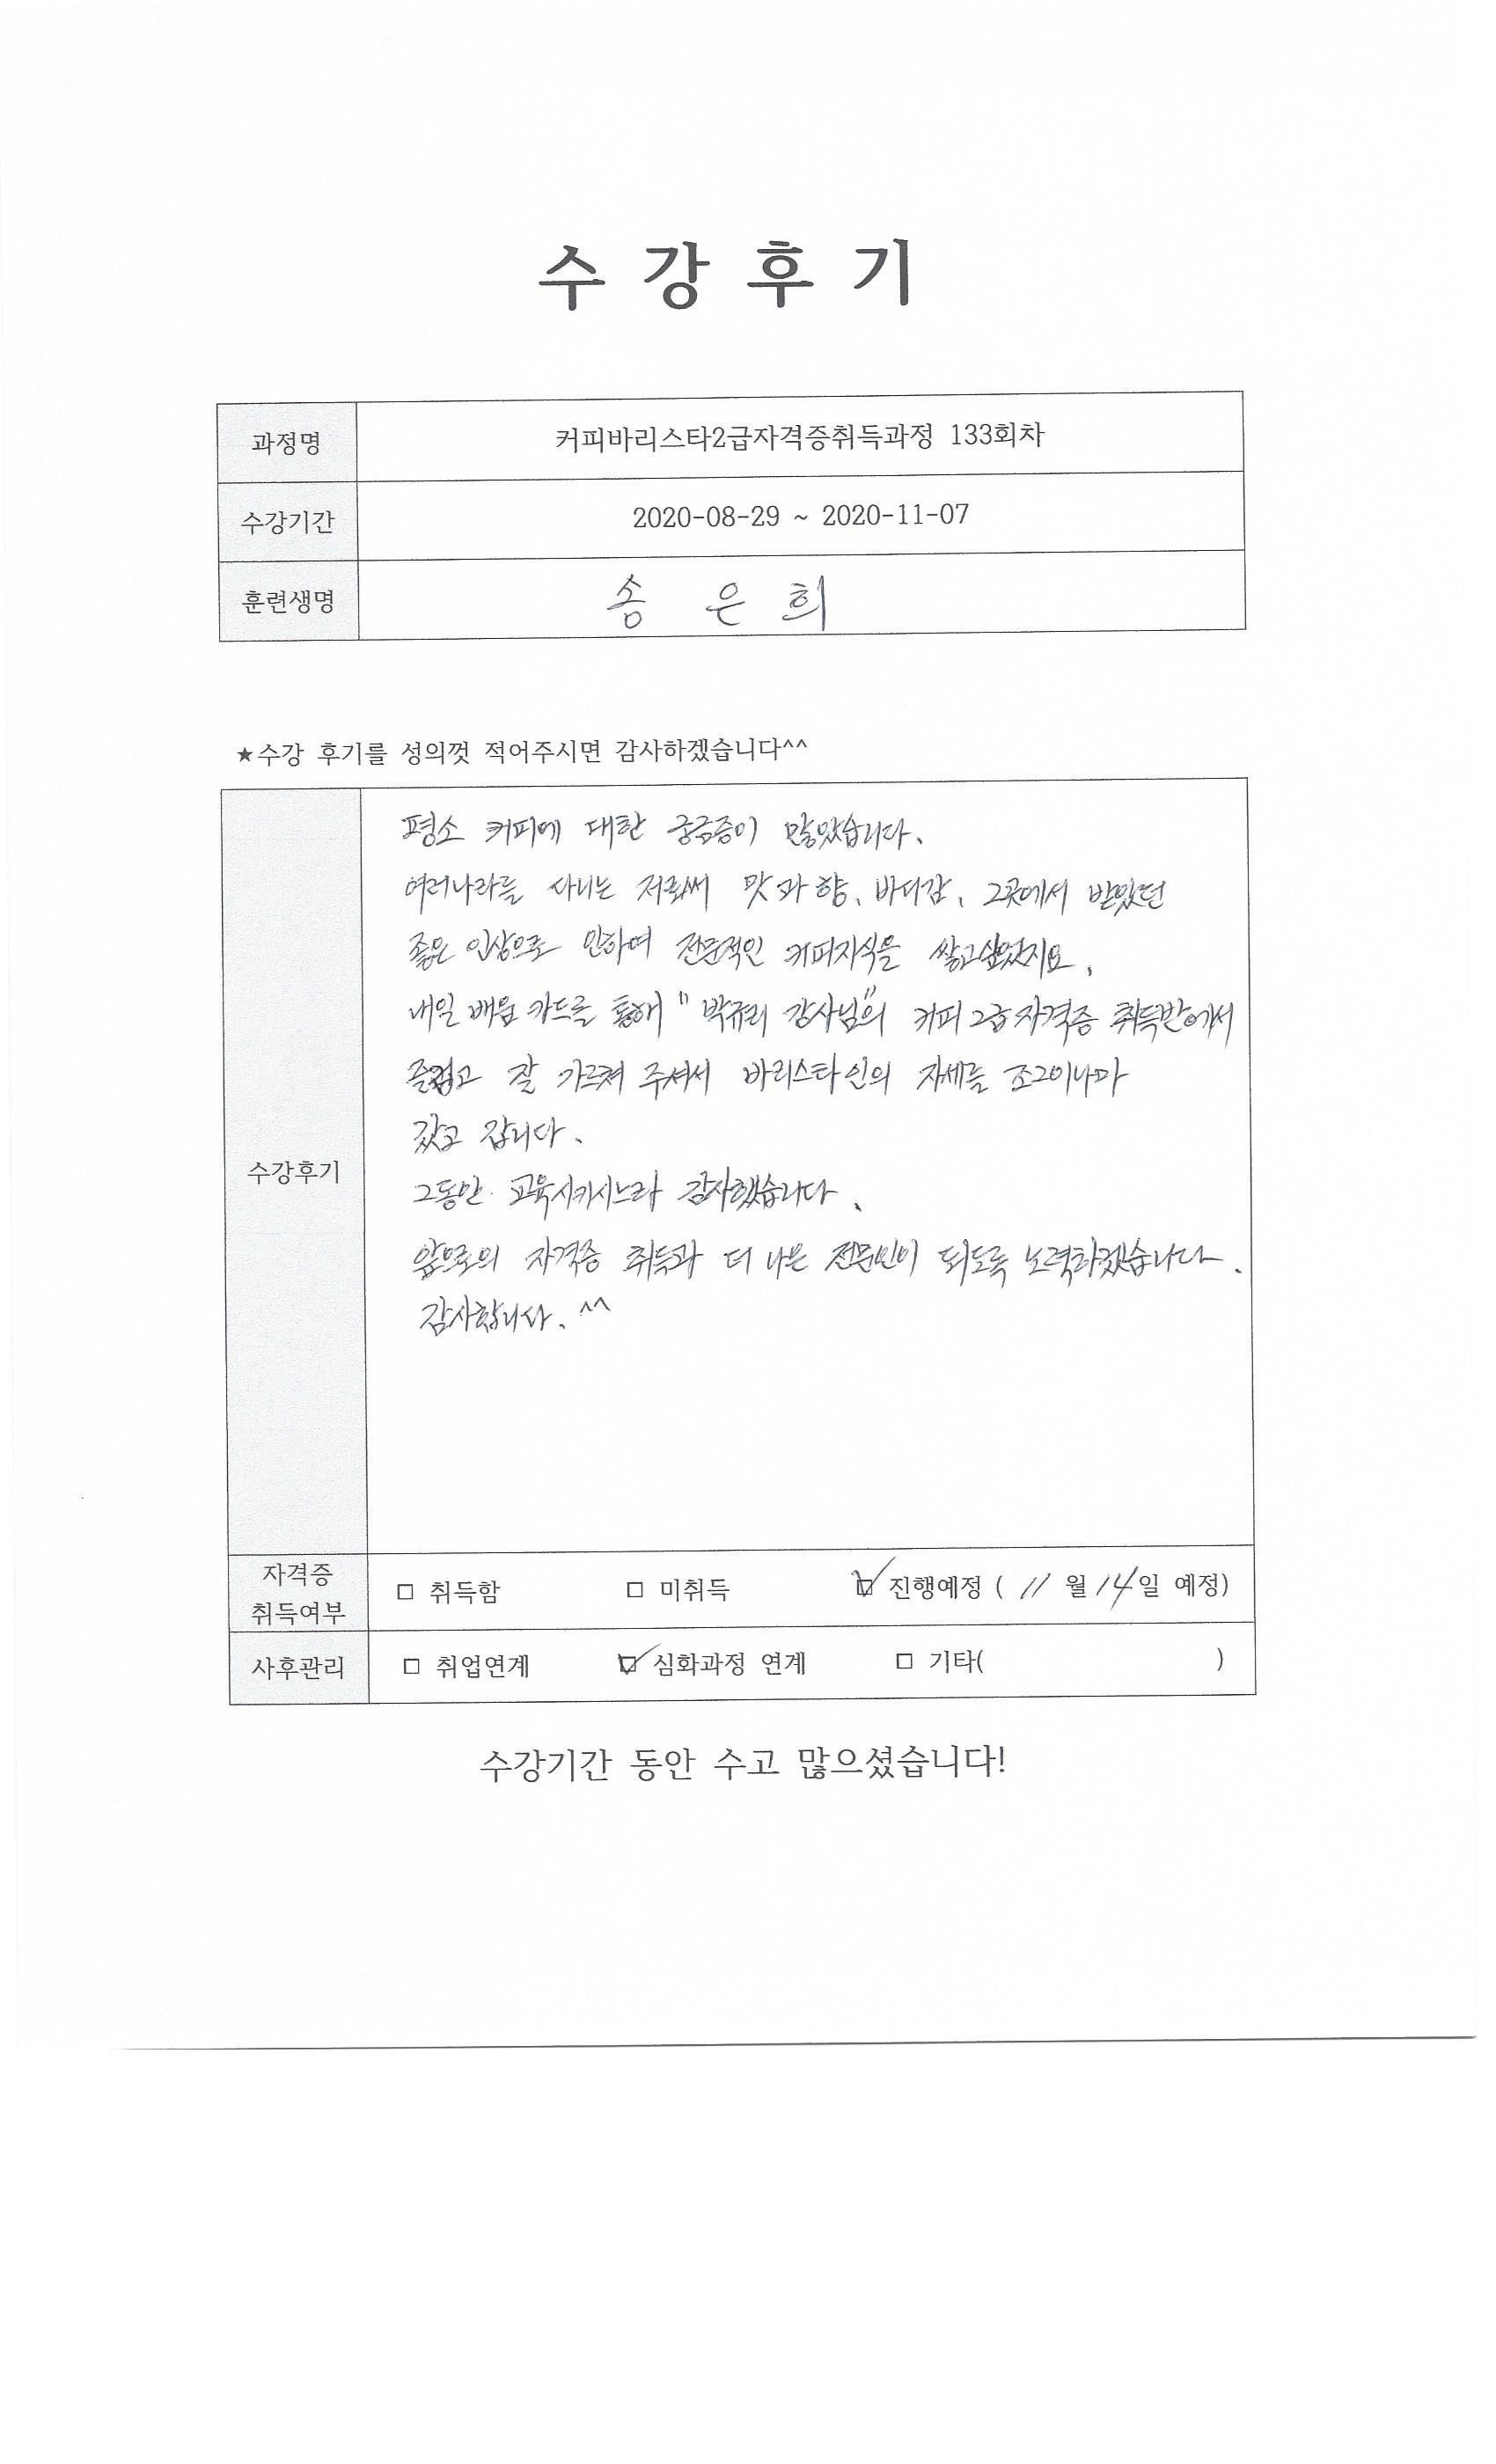 수강후기
과정명 커피바리스타2급자격증취득과정 133회차
수강기간 2020-08-29 ~ 2020-11-07
훈련생명 송 은 희
★수강 후기를 성의껏 적어주시면 감사하겠습니다^^
평소 커피에 대한 궁금증이 많았습니다.
여러나라를 다니는 저로써 맛과 향, 바디감, 그곳에서 받았던
좋은 인상으로 인하여 전문적인 커피지식을 쌓고싶었지요.
내일 배움 카드를 통해 "박규리 강사님"의 커피 2급 자격증 취득반에서
즐겁고 잘 가르쳐 주셔서 바리스타인의 자세를 조그이나마
갔고 갑니다.
수강후기
그동안 교육시키시느라 감사했습니다.
앞으로의 자격증 취득과 더 나은 전문인이 되도록 노력하겠습니다.
감사합니다. ^^
자격증
취득여부
□ 취득함 □ 미취득 ☑ 진행예정 ( 11 월 14일 예정)
사후관리 □ 취업연계 ☑ 심화과정 연계 □ 기타( )
수강기간 동안 수고 많으셨습니다!